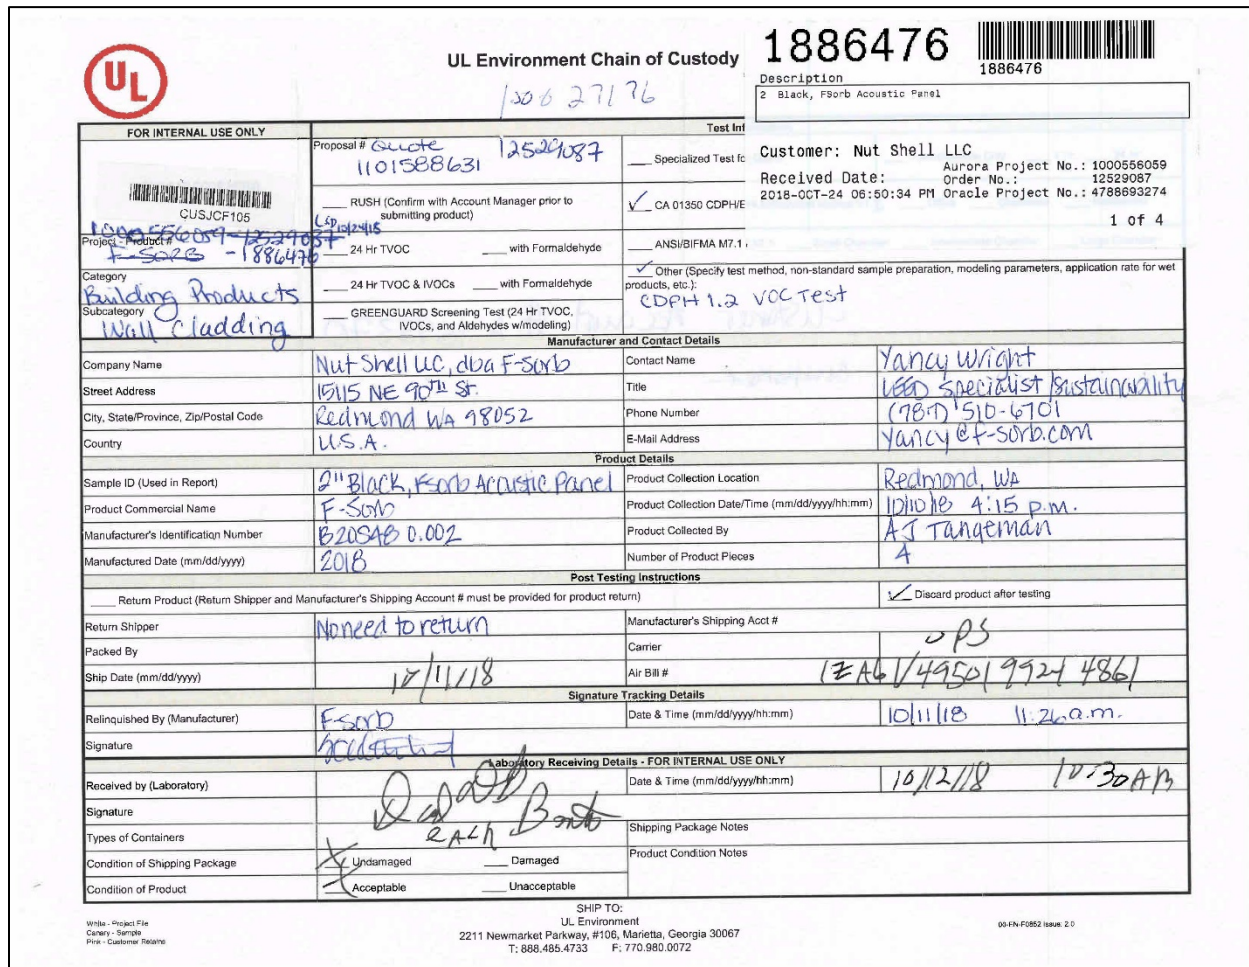 UL
UL Environment Chain of Custody
1886476
1886476
Description
2 Black, FSorb Acoustic Panel
Customer: Nut Shell LLC
Aurora Project No.: 1000556059
Received Date:
Order No.: 12529087
2018-OCT-24 06:50:34 PM Oracle Project No.: 4788693274
1 of 4
FOR INTERNAL USE ONLY
Test Inf
CUSJCF105
Project - Product #
F-SORB - 1886476
Category
Building Products
Subcategory
Wall Cladding
Proposal # Quote 12529087
1101588631
RUSH (Confirm with Account Manager prior to
submitting product)
24 Hr TVOC with Formaldehyde
24 Hr TVOC & IVOCs with Formaldehyde
GREENGUARD Screening Test (24 Hr TVOC,
IVOCs, and Aldehydes w/modeling)
Specialized Test fo
CA 01350 CDPH/E
ANSI/BIFMA M7.1
Other (Specify test method, non-standard sample preparation, modeling parameters, application rate for wet
products, etc.):
CDPH 1.2 VOC Test
Manufacturer and Contact Details
Company Name Nut Shell LLC, dba F-Sorb Contact Name Yancy Wright
Street Address 15115 NE 90TH St. Title LEED Specialist/Sustainability
City, State/Province, Zip/Postal Code Redmond WA 98052 Phone Number 510-6701
Country U.S.A. E-Mail Address Yancy@f-sorb.com
Product Details
Sample ID (Used in Report) 2" Black, Fsorb Acoustic Panel Product Collection Location Redmond, WA
Product Commercial Name F-Sorb Product Collection Date/Time (mm/dd/yyyy/hh:mm) 10/10/18 4:15 p.m.
Manufacturer's Identification Number B20S48 0.002 Product Collected By AJ Tangeman
Manufactured Date (mm/dd/yyyy) 2018 Number of Product Pieces 4
Post Testing Instructions
Return Product (Return Shipper and Manufacturer's Shipping Account # must be provided for product return) Discard product after testing
Return Shipper No need to return Manufacturer's Shipping Acct #
Packed By Carrier UPS
Ship Date (mm/dd/yyyy) 10/11/18 Air Bill #
Signature Tracking Details
Relinquished By (Manufacturer) F-sorb Date & Time (mm/dd/yyyy/hh:mm) 10/11/18 11:26 a.m.
Signature
Laboratory Receiving Details - FOR INTERNAL USE ONLY
Received by (Laboratory) Date & Time (mm/dd/yyyy/hh:mm) 10/12/18 10:30 AM
Signature
Types of Containers Shipping Package Notes
Condition of Shipping Package Undamaged Damaged Product Condition Notes
Condition of Product Acceptable Unacceptable
White - Project File
Canary - Sample
Pink - Customer Retains
SHIP TO:
UL Environment
2211 Newmarket Parkway, #106, Marietta, Georgia 30067
T: 888.485.4733 F: 770.980.0072
00-FN-F0852 Issue: 2.0